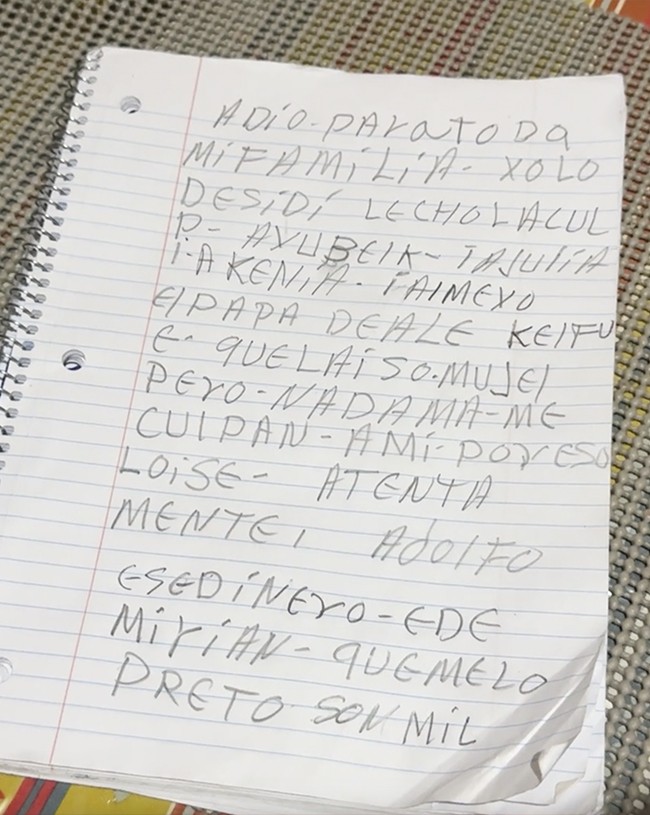 ADIO-PARA TODA
MI FAMILIA- XOLO
DESIDI LECHOLACUL
P- AYUBEIK- IAJULIA
I-A KENIA- IAIMEYO
EIPAPA DEALE KEIFU
E- QUELAISO-MUJEI
PERO-NADAMA-ME
CUIPAN-AMI-PORESO
LOISE- ATENTA
MENTE, AdOIFO
ESEDINERO-EDE
MIRIAN-QUEMELO
PRETO SON MIL